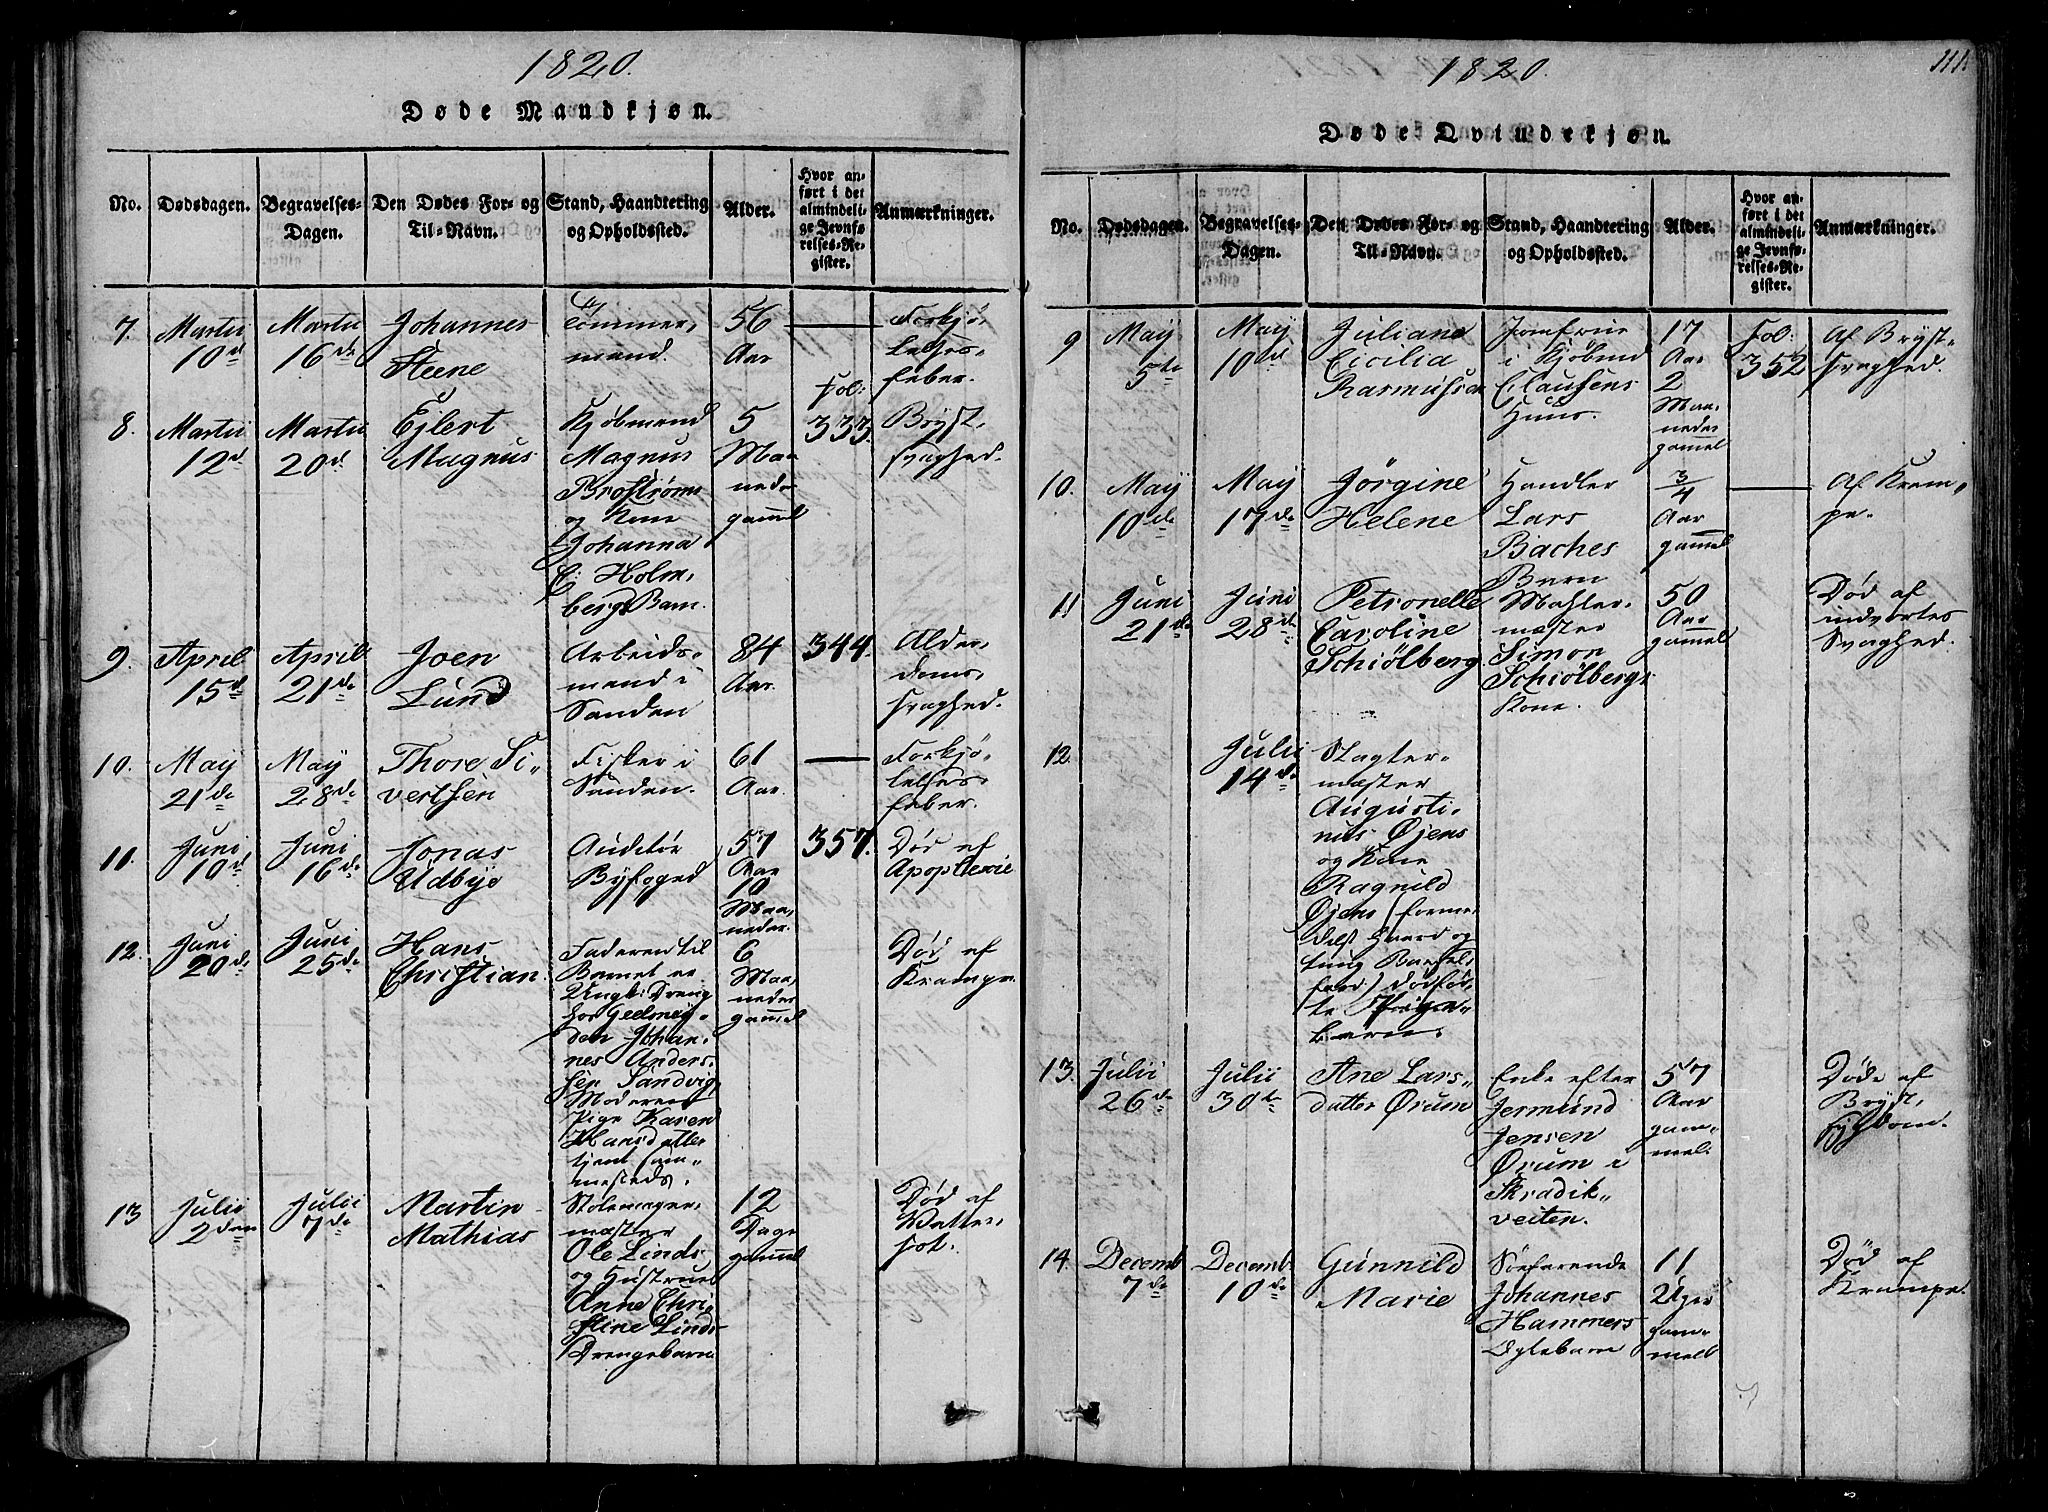 1820.
Døde Mandkjøn.
No.
Dødsdagen.
Begravelses-
Dagen.
Den Dødes For- og
Til-Navn.
Stand, Haandtering
og Opholdssted.
Alder.
Hvor an-
ført i det
almindeli-
ge Jevnfø-
relses-Re-
gister.
Anmærkninger.
7.
Martii
10d
Martii
16de
Johannes
Steene
Tömmer,
mand.
56
Aar
Forkjö,
lelses,
feber.
8.
Martii
12d
Martii
20d.
Ejlert
Magnus
Kjöbmand
Magnus
Broströms
og Kone
Johanna
C: Holm,
bergs Barn.
5
Maa
neder
gammel
Fol:
333.
Bryst,
svaghed.
9.
April
15d
April
21de
Joen
Lund
Arbeids-
mand i
Sanden
84
Aar.
344.
Alder,
doms,
svaghed.
10.
Maij
21de
May
28de
Thore Si-
vertsen
Fisker i
Sanden.
61
Aar.
Forkjö,
lelses,
feber.
11.
Juni
10d
Juni
16de
Jonas
Udbye
Auditör
Byfoged
57
Aar
10
Maa,
neder.
357.
Död af
Apoplexie
12.
Juni
20de
Juni
25de
Hans
Christian.
Faderen til
Barnet er
Ungk: Dreng
hos
den Johan,
nes Anders,
sen Sandvig
Moderen
Pige Karen
Hansdatter
tjent sam-
mesteds.
6
Maa,
neder
gammel
Död af
Krampe.
13
Julii
2den
Julii
7de
Martin
Mathias
Stolemager,
mæster
Ole Linds
og Hustrues
Anne Chri,
stine Linds
Drengebarn
12
Dage
gammel
Död af
Watter,
sot.
1820.
111.
Døde Qvindekjøn.
No.
Dødsdagen.
Begravelses-
Dagen.
Den Dødes For- og
Til-Navn.
Stand, Haandtering
og Opholdssted.
Alder.
Hvor an-
ført i det
almindeli-
ge Jevnfø-
relses-Re-
gister.
Anmærkninger.
9
Maij
5te
Maij
10de
Juliane
Cicilia
Rasmussen
Jomfrue
i Kjöbmd
Clausens
Huus.
17
Aar
2
Maa,
neder
gammel
Fol:
352
Af Bryst-
svaghed.
10.
Maij
10de
Maij
17de
Jörgine
Helene
Handler
Lars
Baches
Barn
3/4
Aar
gammel
Af Kram,
pe.
11
Juni
21de
Juni
28de
Petronelle
Caroline
Schiölberg.
Mahler-
mæster
Simon
Schiölbergs
Kone.
50
Aar
gammel
Död af
indvortes
Svaghed.
12.
Julii
14de
Slagter-
mæster
Augusti-
nus Öjens
og Kone
Ragnild
Öjens (forme,
delst haard og
tung Barsel,
færd) dödföd,
te Pige-
barn.
13.
Julii
26de
Julii
30te
Ane Lars-
datter Örum
Enke efter
Jermund
Jensen
Örum i
Skradik-
veiten.
57
Aar
gam-
mel.
Döde af
Bryst,
sygdom.
14.
Decemb
7de
Decemb.
10de
Gunnild
Marie
Söefarende
Johannes
Hammers
Ægtebarn
11
Uger
gam-
mel
Död af
Krampe.